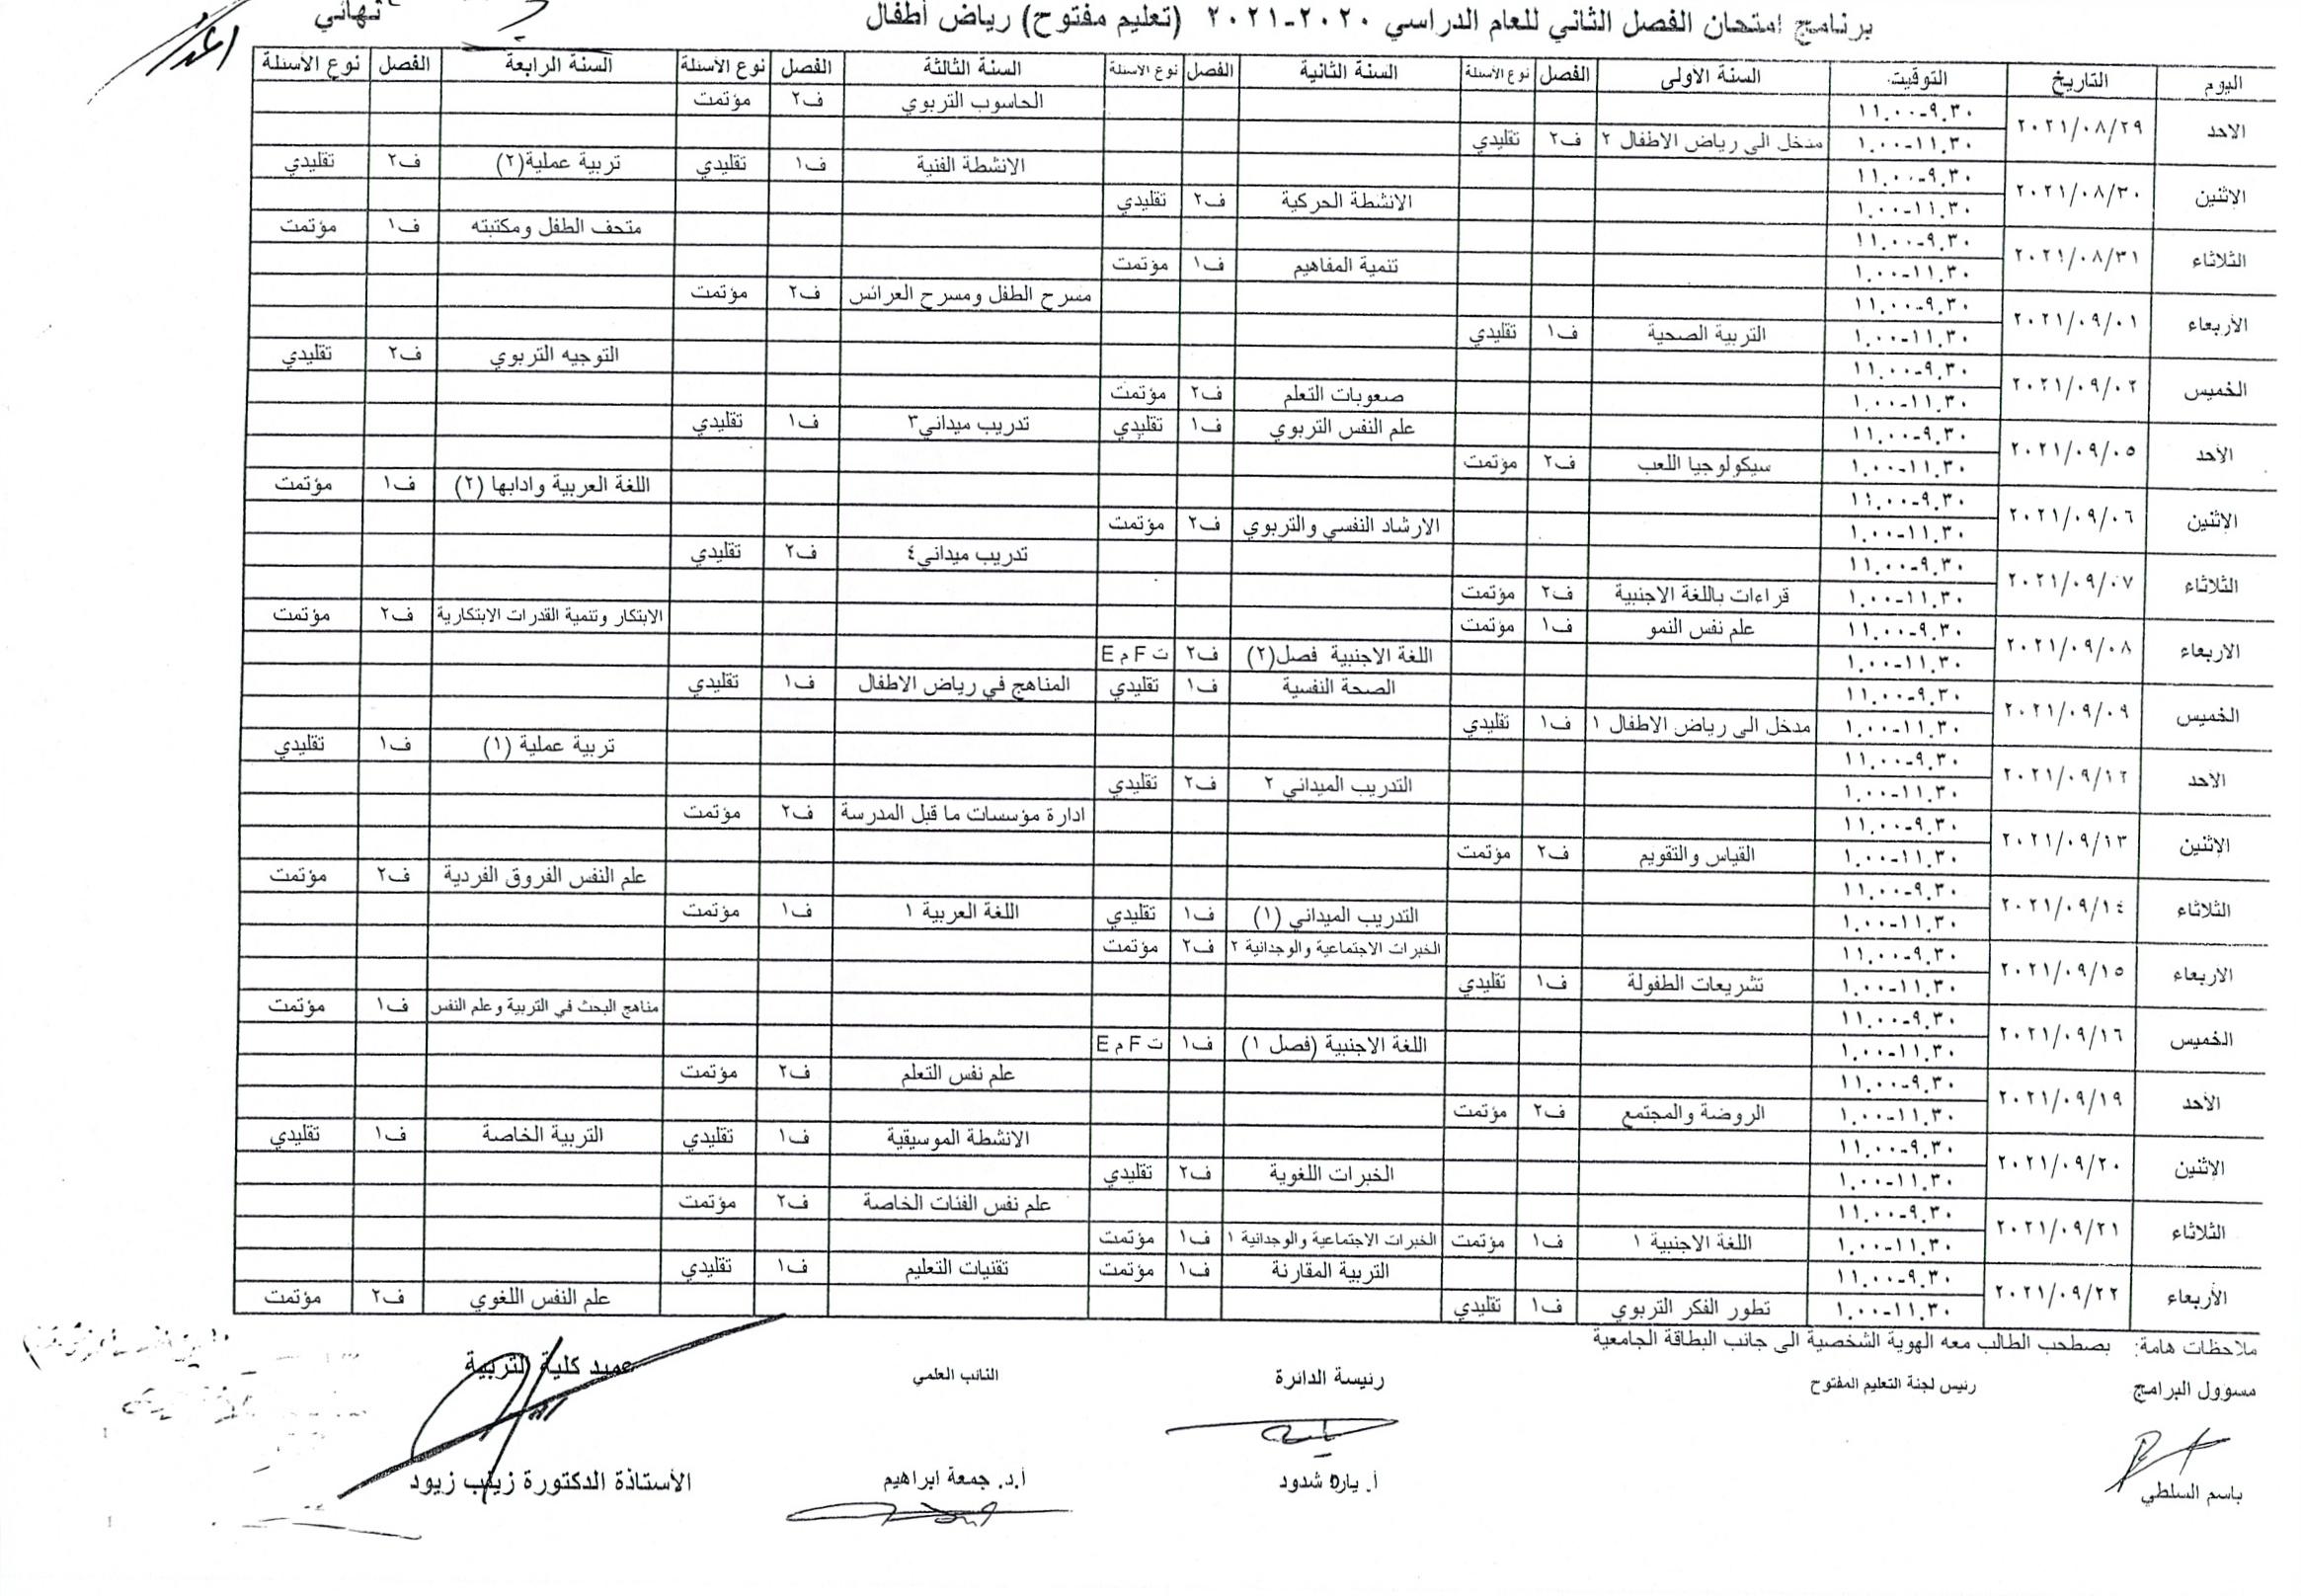 برنامج امتحان الفصل الثاني للعام الدراسي ٢٠٢٠-٢٠٢١ (تعليم مفتوح) رياض أطفال نهائي
اليوم التاريخ التوقيت السنة الأولى الفصل نوع الأسئلة السنة الثانية الفصل نوع الأسئلة السنة الثالثة الفصل نوع الأسئلة السنة الرابعة الفصل نوع الأسئلة
الاحد ٢٠٢١/٠٨/٢٩ ٩.٣٠-١١.٠٠ الحاسوب التربوي ف٢ مؤتمت
١١.٣٠-١.٠٠ مدخل الى رياض الاطفال ٢ ف٢ تقليدي
الإثنين ٢٠٢١/٠٨/٣٠ ٩.٣٠-١١.٠٠ الانشطة الفنية ف١ تقليدي تربية عملية(٢) ف٢ تقليدي
١١.٣٠-١.٠٠ الانشطة الحركية ف٢ تقليدي
الثلاثاء ٢٠٢١/٠٨/٣١ ٩.٣٠-١١.٠٠ متحف الطفل ومكتبته ف١ مؤتمت
١١.٣٠-١.٠٠ تنمية المفاهيم ف١ مؤتمت
الأربعاء ٢٠٢١/٠٩/٠١ ٩.٣٠-١١.٠٠ مسرح الطفل ومسرح العرائس ف٢ مؤتمت
١١.٣٠-١.٠٠ التربية الصحية ف١ تقليدي
الخميس ٢٠٢١/٠٩/٠٢ ٩.٣٠-١١.٠٠ التوجيه التربوي ف٢ تقليدي
١١.٣٠-١.٠٠ صعوبات التعلم ف٢ مؤتمت
الأحد ٢٠٢١/٠٩/٠٥ ٩.٣٠-١١.٠٠ علم النفس التربوي ف١ تقليدي تدريب ميداني٣ ف١ تقليدي
١١.٣٠-١.٠٠ سيكولوجيا اللعب ف٢ مؤتمت
الإثنين ٢٠٢١/٠٩/٠٦ ٩.٣٠-١١.٠٠ اللغة العربية وادابها (٢) ف١ مؤتمت
١١.٣٠-١.٠٠ الارشاد النفسي والتربوي ف٢ مؤتمت
الثلاثاء ٢٠٢١/٠٩/٠٧ ٩.٣٠-١١.٠٠ تدريب ميداني٤ ف٢ تقليدي
١١.٣٠-١.٠٠ قراءات باللغة الاجنبية ف٢ مؤتمت
الاربعاء ٢٠٢١/٠٩/٠٨ ٩.٣٠-١١.٠٠ علم نفس النمو ف١ مؤتمت الابتكار وتنمية القدرات الابتكارية ف٢ مؤتمت
١١.٣٠-١.٠٠ اللغة الاجنبية فصل(٢) ف٢ ت F م E
الخميس ٢٠٢١/٠٩/٠٩ ٩.٣٠-١١.٠٠ الصحة النفسية ف١ تقليدي المناهج في رياض الاطفال ف١ تقليدي
١١.٣٠-١.٠٠ مدخل الى رياض الاطفال ١ ف١ تقليدي
الاحد ٢٠٢١/٠٩/١٢ ٩.٣٠-١١.٠٠ تربية عملية (١) ف١ تقليدي
١١.٣٠-١.٠٠ التدريب الميداني ٢ ف٢ تقليدي
الإثنين ٢٠٢١/٠٩/١٣ ٩.٣٠-١١.٠٠ ادارة مؤسسات ما قبل المدرسة ف٢ مؤتمت
١١.٣٠-١.٠٠ القياس والتقويم ف٢ مؤتمت
الثلاثاء ٢٠٢١/٠٩/١٤ ٩.٣٠-١١.٠٠ علم النفس الفروق الفردية ف٢ مؤتمت
١١.٣٠-١.٠٠ التدريب الميداني (١) ف١ تقليدي اللغة العربية ١ ف١ مؤتمت
الاربعاء ٢٠٢١/٠٩/١٥ ٩.٣٠-١١.٠٠ الخبرات الاجتماعية والوجدانية ٢ ف٢ مؤتمت
١١.٣٠-١.٠٠ تشريعات الطفولة ف١ تقليدي
الخميس ٢٠٢١/٠٩/١٦ ٩.٣٠-١١.٠٠ مناهج البحث في التربية وعلم النفس ف١ مؤتمت
١١.٣٠-١.٠٠ اللغة الاجنبية (فصل ١) ف١ ت F م E
الأحد ٢٠٢١/٠٩/١٩ ٩.٣٠-١١.٠٠ علم نفس التعلم ف٢ مؤتمت
١١.٣٠-١.٠٠ الروضة والمجتمع ف٢ مؤتمت
الإثنين ٢٠٢١/٠٩/٢٠ ٩.٣٠-١١.٠٠ الانشطة الموسيقية ف١ تقليدي التربية الخاصة ف١ تقليدي
١١.٣٠-١.٠٠ الخبرات اللغوية ف٢ تقليدي
الثلاثاء ٢٠٢١/٠٩/٢١ ٩.٣٠-١١.٠٠ علم نفس الفئات الخاصة ف٢ مؤتمت
١١.٣٠-١.٠٠ اللغة الاجنبية ١ ف١ مؤتمت الخبرات الاجتماعية والوجدانية ١ ف١ مؤتمت
الأربعاء ٢٠٢١/٠٩/٢٢ ٩.٣٠-١١.٠٠ التربية المقارنة ف١ مؤتمت تقنيات التعليم ف١ تقليدي
١١.٣٠-١.٠٠ تطور الفكر التربوي ف١ تقليدي علم النفس اللغوي ف٢ مؤتمت
ملاحظات هامة: يصطحب الطالب معه الهوية الشخصية الى جانب البطاقة الجامعية
مسؤول البرامج رئيس لجنة التعليم المفتوح رئيسة الدائرة النائب العلمي عميد كلية التربية
باسم السلطي أ. يارا شدود أ.د. جمعة ابراهيم الأستاذة الدكتورة زينب زيود